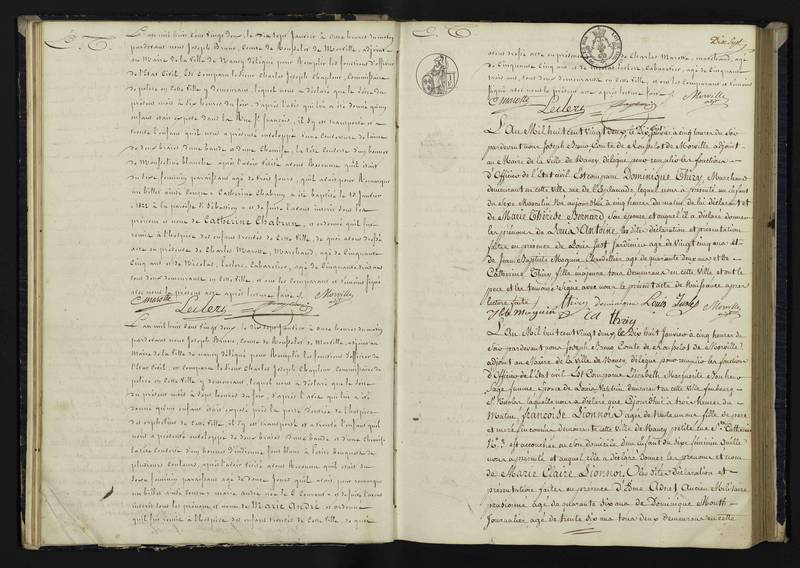 L'an mil huit cent vingt deux, le dix sept Janvier à onze heures du matin
pardevant nous Joseph Bruno, Comte de Rousselot de Morville, adjoint
au Maire de la Ville de Nancy délégué pour remplir les fonctions d'officier
de l'Etat Civil, est comparu le sieur Charles Joseph Chapleur, Commissaire
de police en cette Ville y demeurant, lequel nous a déclaré que le
présent mois à dix heures du soir, d'après l'avis qui lui a été donné qu'un
enfant était exposé dans la Rue St François, il s'y est transporté et a
trouvé l'enfant qu'il nous a présenté enveloppé d'une Couverture de laine
de deux braies d'une bande et d'une Chemise, la tête couverte d'un bonnet
de Mousseline blanche, après l'avoir visité avons Reconnu qu'il était
du sexe féminin paraissant âgé de trois jours, qu'il avait pour Remarque
un billet ainsi conçu « Catherine Chabrun a été baptisée le 15 Janvier
1822 à la paroisse St Sébastien » et de suite l'avons inscrit sous les
prénoms et nom de Catherine Chabrun, et ordonné qu'il fut
remis à l'hospice des enfans trouvés de cette Ville, de quoi avons dressé
acte en présence de Charles Marotte, Marchand, âgé de Cinquante
Cinq ans et de Nicolas Leclerc, Cabaretier, âgé de Cinquante trois ans
tous deux demeurant en cette Ville, et ont les Comparant et témoins signé
avec nous le présent acte après lecture faite.
C marotte Leclerc Morville
L'an mil huit cent vingt deux, le dix sept Janvier à onze heures du matin
pardevant nous Joseph Bruno, Comte de Rousselot de Morville, adjoint au
Maire de la Ville de Nancy délégué pour Remplir les fonctions d'officier de
l'Etat Civil, est comparu le sieur Charles Joseph Chapleur Commissaire de
police en cette Ville y demeurant, lequel nous a déclaré que le
du présent mois à sept heures du soir, d'après l'avis qui lui a été
donné qu'un enfant était exposé près la porte d'entrée de l'hospice
des orphelins de cette Ville, il s'y est transporté et a trouvé l'enfant qu'il
nous a présenté enveloppé de deux braies d'une bande et d'une chemise
la tête couverte d'un bonnet d'indienne
plusieurs couleurs, après l'avoir visité avons Reconnu qu'il était du
sexe féminin paraissant âgé de douze jours qu'il avait pour remarque
un billet ainsi conçu et de suite l'avons
inscrit sous les prénom et nom de Marie André et ordonné
qu'il fut remis à l'hospice des enfans trouvés de cette Ville, de quoi
Dix Sept
avons dressé acte en présence de Charles Marotte, marchand, âgé
de Cinquante Cinq ans et de Nicolas Leclerc, Cabaretier, âgé de Cinquante
trois ans, tous deux demeurant en cette Ville, et ont les comparant et témoins
signé avec nous le présent acte après lecture faite.
C marotte Leclerc Morville
L'An Mil huit cent Vingt deux, le Dix huit Janvier à cinq heures du Soir
pardevant nous Joseph Bruno Comte de Rousselot de Morville adjoint
au Maire de la Ville de Nancy, délégué pour remplir les fonctions
d'Officier de l'Etat civil Est comparu Dominique Thiry, Marchand
demeurant en cette Ville, rue de l'Esplanade, lequel nous a présenté un Enfant
du Sexe Masculin Né aujourdhui à cinq heures du matin, de lui déclarant et
de Marie Thérèse Bernard, Son épouse et auquel il a déclaré donner
les prénoms de Louis Antoine, les dites déclaration et présentation
faites en présence de Louis Just Jardinier, agé de Vingt cinq ans et
de Jean Baptiste Maguin Chandellier, agé de quarante deux ans et de
Catherine Thiry fille majeure tous demeurant en cette Ville et ont le
père et les témoins Signé avec nous le présent acte de Naissance après
lecture faite. thiry dominique Louis Juste Morville
J Bte maguin Cd thiry
L'An Mil huit cent Vingt deux, le Dix huit Janvier, à cinq heures du
Soir pardevant nous Joseph Bruno Comte de Rousselot de Morville,
adjoint au Maire de la Ville de Nancy, délégué pour remplir les fonctions
d'Officier de l'Etat civil Est Comparue Elisabeth Marguerite
Sage femme, Epouse de Louis demeurant en cette Ville faubourg
St Nicolas laquelle nous a déclaré que Aujourdhui à trois heures du
Matin, Françoise Lionnois, Agée de trente un ans fille de père
et mère inconnus demeurante cette Ville de Nancy petite rue Ste Catherine
No 3 est accouchée en Son domicile d'un Enfant du Sexe féminin qu'elle
nous a présenté et auquel elle a déclaré donner les prénoms et nom
de Marie Claire Lionnois, Les dites déclaration et
présentation faites en présence d'Edme Ancien Militaire
pensionné, agé de quarante Dix ans de Dominique
Journalier, agé de trente dix ans tous deux demeurant en cette